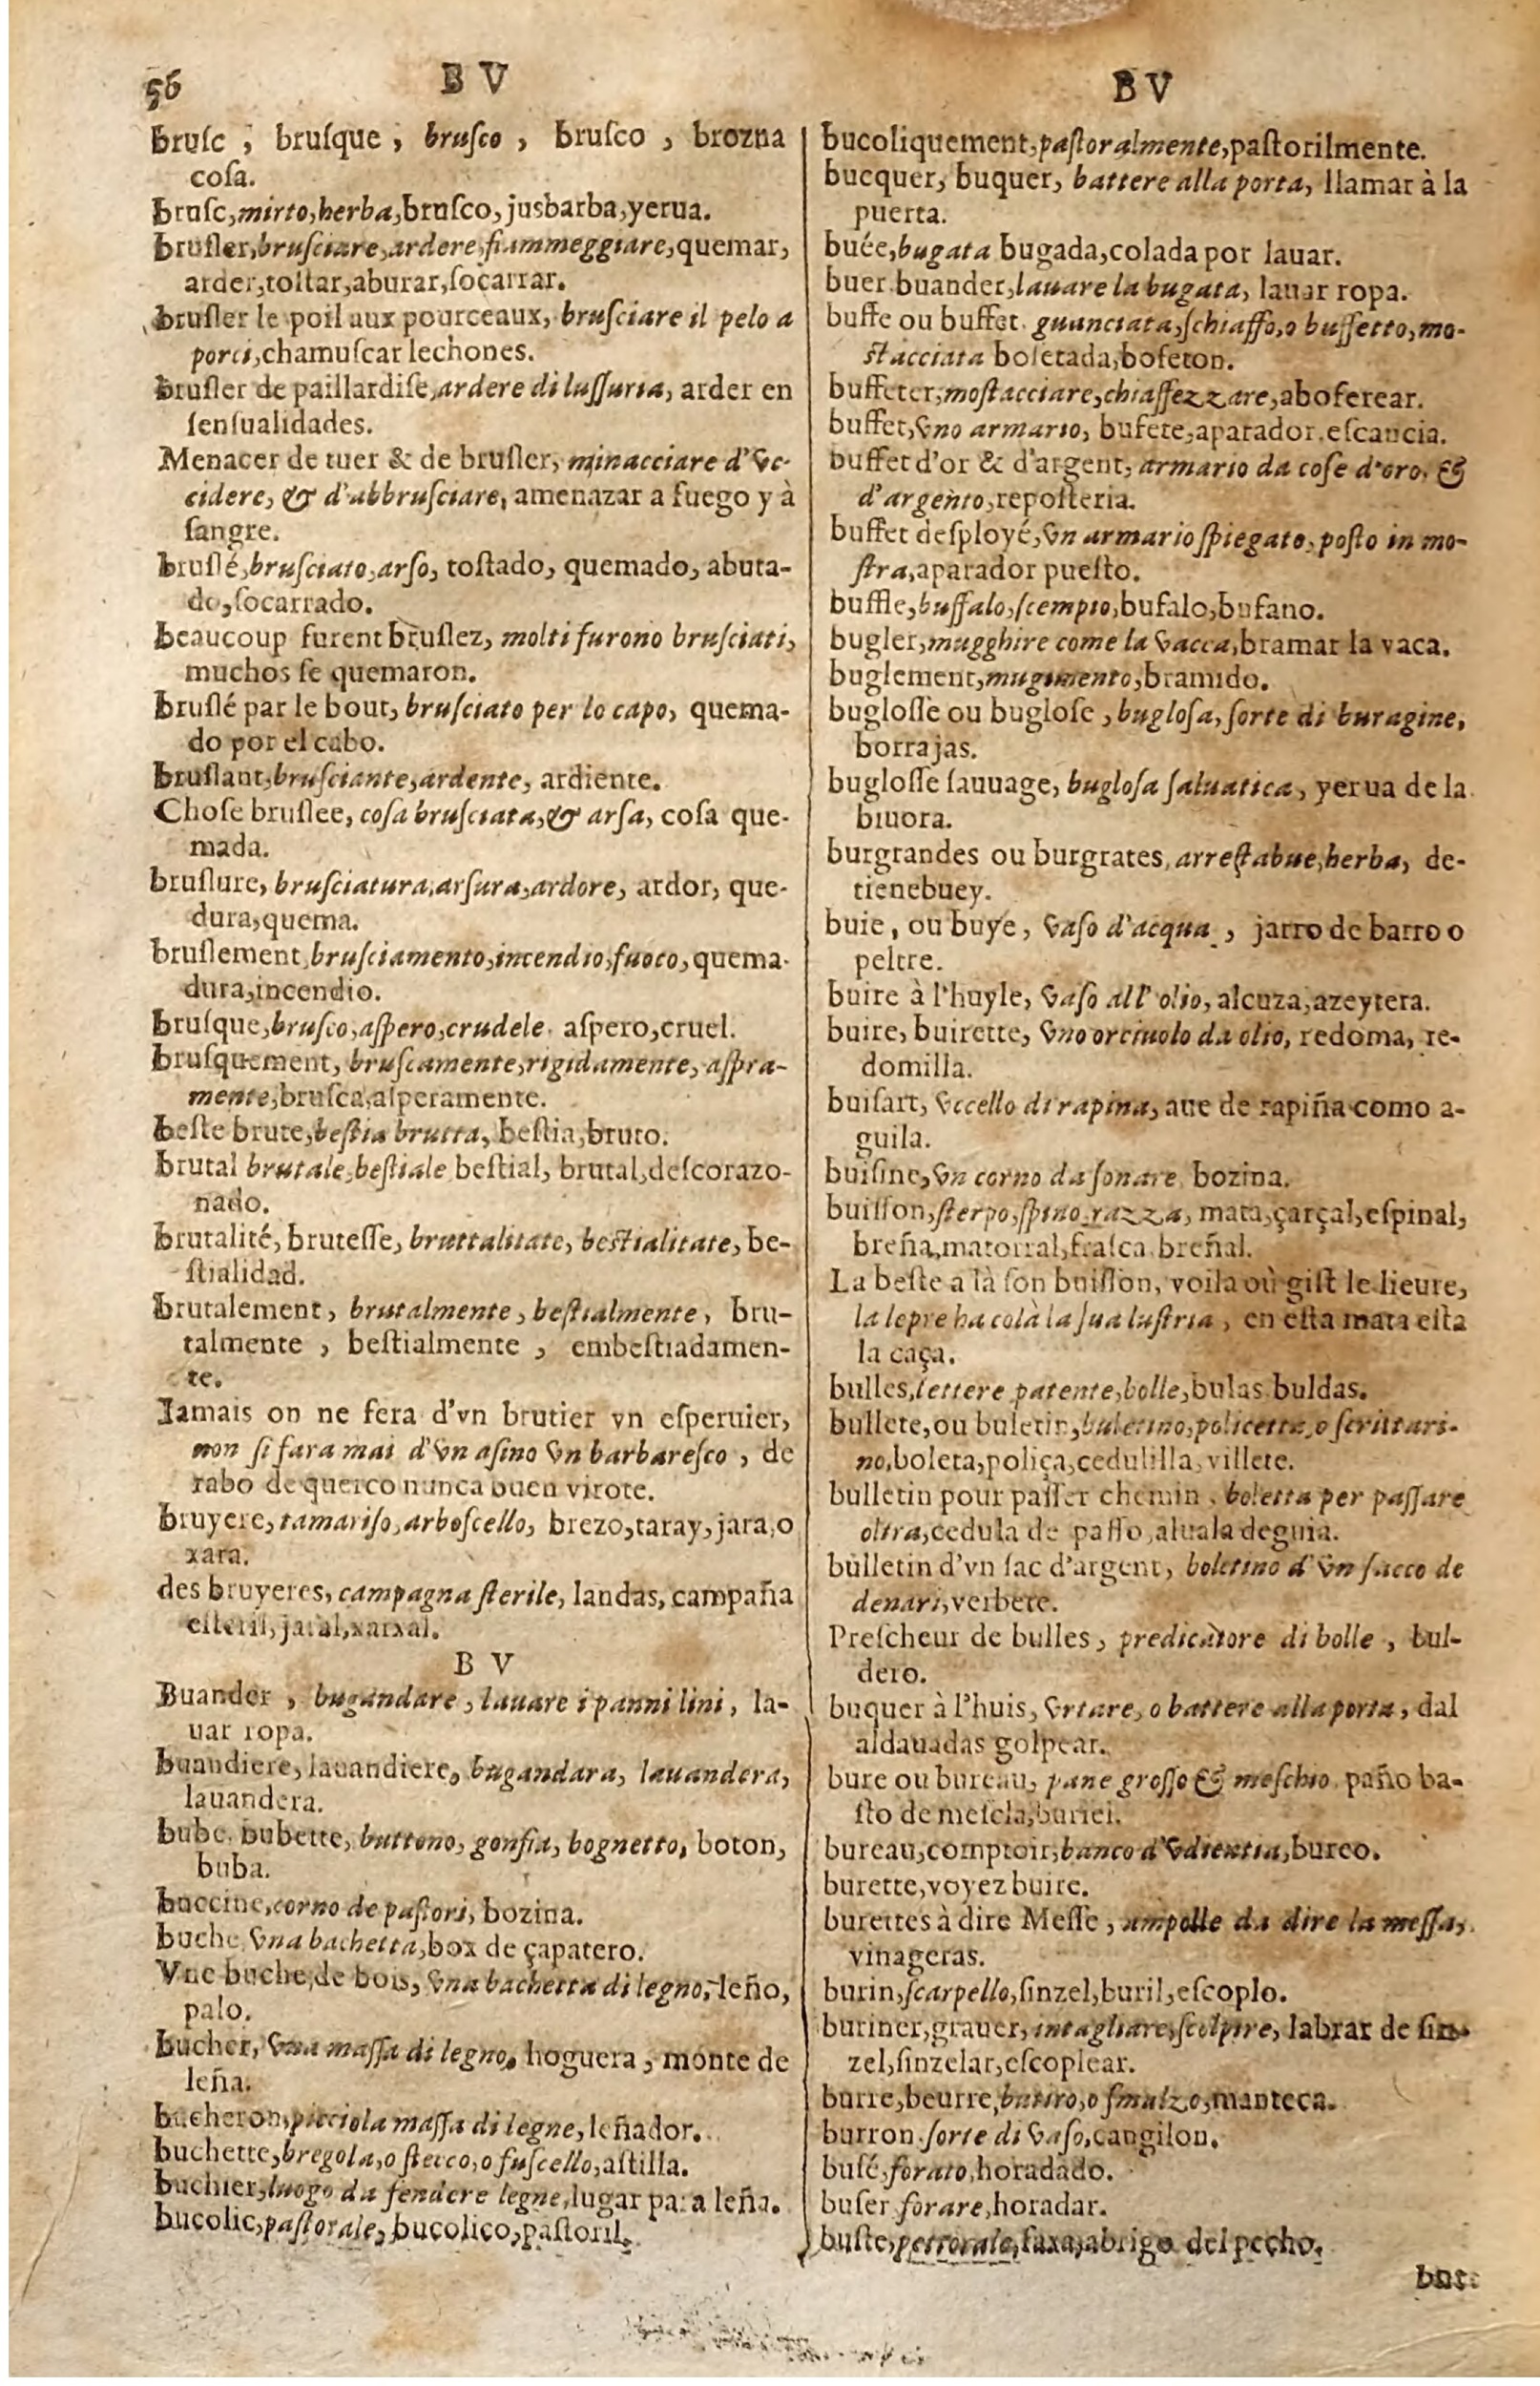 56
B V
bruſc, bruſque, bruſco, bruſco, brozna
coſa.
bruſc, mirto, herba, bruſco, jusbarba, yerua.
bruſler, bruſciare, ardere, fiammeggiare, quemar,
arder, toſtar, aburar, ſocarrar.
bruſler le poil aux pourceaux, bruſciare il pelo a
porci, chamuſcar lechones.
bruſler de paillardiſe, ardere di luſſuria, arder en
ſenſualidades.
Menacer de tuer & de bruſler, minacciare d'vc-
cidere, & d'abbruſciare, amenazar a fuego y à
ſangre.
bruſlé, bruſciato, arſo, toſtado, quemado, abura-
do, ſocarrado.
beaucoup furent bruſlez, molti furono bruſciati,
muchos ſe quemaron.
bruſlé par le bout, bruſciato per lo capo, quema-
do por el cabo.
bruſlant, bruſciante, ardente, ardiente.
Choſe bruſlee, coſa bruſciata, & arſa, coſa que-
mada.
bruſlure, bruſciatura, arſura, ardore, ardor, que-
dura, quema.
bruſlement, bruſciamento, incendio, fuoco, quema-
dura, incendio.
bruſque, bruſco, aſpero, crudele. aſpero, cruel.
bruſquement, bruſcamente, rigidamente, aſpra-
mente, bruſca, aſperamente.
beſte brute, beſtia brutta, beſtia, bruto.
brutal brutale, beſtiale beſtial, brutal, deſcorazo-
nado.
brutalité, bruteſſe, bruttalitate, beſtialitate, be-
ſtialidad.
brutalement, brutalmente, beſtialmente, bru-
talmente, beſtialmente, embeſtiadamen-
te.
Iamais on ne fera d'vn brutier vn eſperuier,
non ſi fara mai d'vn aſino vn barbareſco, de
rabo de puerco nunca buen virote.
bruyere, tamariſo, arboscello, brezo, taray, jara, o
xara.
des bruyeres, campagna ſterile, landas, campaña
eſteril, jaral, xarxal.
B V
Buander, bugandare, lauare i panni lini, la-
uar ropa.
buandiere, lauandiere, bugandara, lauandera,
lauandera.
bube. bubette, buttono, gonfia, bognetto, boton,
buba.
buccine, corno de paſtori, bozina.
buche, vna bachetta, box de çapatero.
Vne buche, de bois, vna bachetta di legno, leño,
palo.
bucher, vna maſſa di legno, hoguera, monte de
leña.
bucheron, picciola maſſa di legne, leñador.
buchette, bregola, o ſtecco, o fuſcello, aſtilla.
buchier, luogo da fendere legne, lugar para leña.
bucolic, paſtorale, bucolico, paſtoril.
B V
bucoliquement, paſtoralmente, paſtorilmente.
bucquer, buquer, battere alla porta, llamar à la
puerta.
buée, bugata bugada, colada por lauar.
buer. buander, lauare la bugata, lauar ropa.
buffe ou buffet. guanciata, ſchiaffo, o buffetto, mo-
ſtacciata bofetada, bofeton.
buffeter, moſtacciare, chiaffezzare, abofetear.
buffet, vno armario, bufete, aparador. eſcancia.
buffet d'or & d'argent, armario da coſe d'oro, &
d'argento, repoſteria.
buffet deſployé, vn armario ſpiegato, poſto in mo-
ſtra, aparador pueſto.
buffle, buffalo, ſcempio, bufalo, bufano.
bugler, mugghire come la vacca, bramar la vaca.
buglement, mugimento, bramido.
bugloſſe ou bugloſe, bugloſa, ſorte di buragine,
borrajas.
bugloſſe ſauuage, bugloſa ſaluatica, yerua de la
biuora.
burgrandes ou burgrates, arreſtabue, herba, de-
tienebuey.
buie, ou buye, vaſo d'acqua, jarro de barro o
peltre.
buire à l'huyle, vaſo all' olio, alcuza, azeytera.
buire, buirette, vno orciuolo da olio, redoma, re-
domilla.
buiſart, vccello di rapina, aue de rapiña como a-
guila.
buiſine, vn corno da ſonare. bozina.
buiſſon, ſterpo, ſpino, razza, mata, çarçal, eſpinal,
breña, matorral, fraſca. breñal.
La beſte a là ſon buiſſon, voila où giſt le lieure,
la lepre ha colà la ſua luſtria, en eſta mata eſta
la caça.
bulles, lettere patente, bolle, bulas buldas.
bullete, ou buletin, buletino, policetta, o ſcrittari-
no, boleta, poliça, cedulilla, villete.
bulletin pour paſſer chemin, boletta per paſſare
oltra, cedula de paſſo, aluala de guia.
bulletin d'vn ſac d'argent, boletino d'vn ſacco de
denari, verbete.
Preſcheur de bulles, predicatore di bolle, bul-
dero.
buquer à l'huis, vrtare, o battere alla porta, dal
aldauadas golpear.
bure ou bureau, pane groſſo & meſchio. paño ba-
ſto de meſcla, buriel.
bureau, comptoir, banco d'vdientia, bureo.
burette, voyez buire.
burettes à dire Meſſe, ampolle da dire la meſſa,
vinageras.
burin, ſcarpello, ſinzel, buril, eſcoplo.
buriner, grauer, intagliare, ſcolpire, labrar de ſin-
zel, ſinzelar, eſcoplear.
burre, beurre, butiro, o ſmalzo, manteca.
burron. ſorte di vaſo, cangilon.
buſé, forato, horadado.
buſer forare, horadar.
buſte, pettorale, faxa, abrigo del pecho.